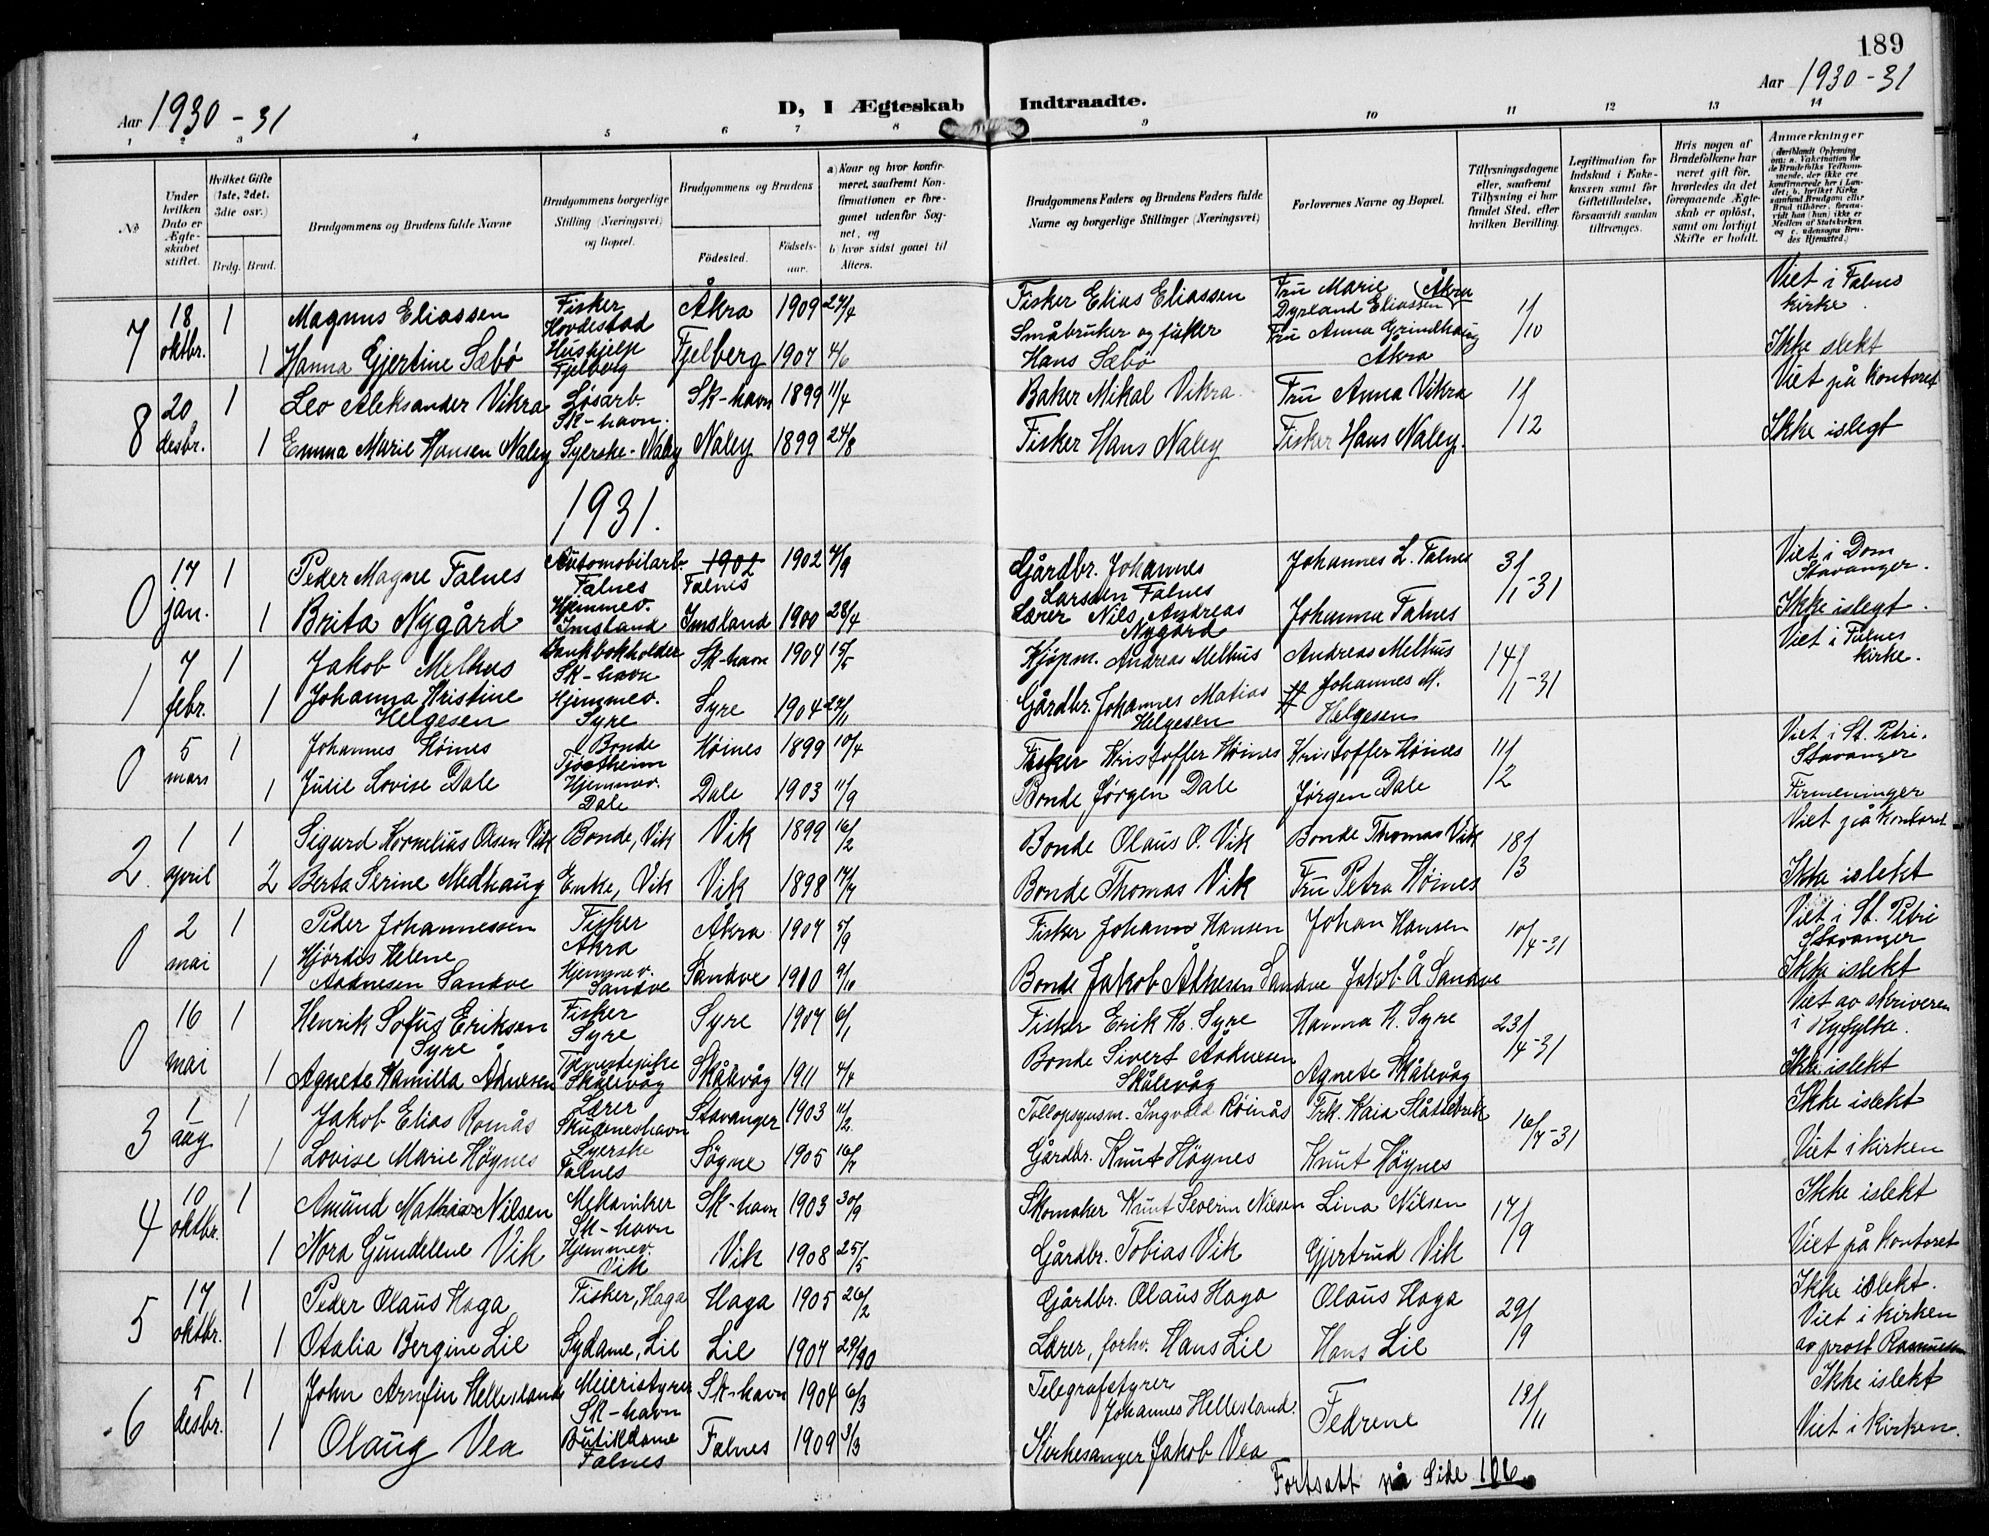 189
Aar 1930-31
Aar 1930-31
D, I Ægteskab Indtraadte.
1 2 3 4 5 6 7 8 9 10 11 12 13 14
No
Under hvilken Dato er Ægteskabet stiftet.
Hvilket Gifte (1ste, 2det. 3die osv.)
Brdg. Brud.
Brudgommens og Brudens fulde Navne
Brudgommens borgerlige Stilling (Næringsvei) og Bopæl.
Brudgommens og Brudens
Fødested. Fødselsaar.
a) Naar og hvor konfirmeret, saafremt Konfirmationen er foregaaet udenfor Sognet, og
b) hvor sidst gaaet til Alters.
Brudgommens Faders og Brudens Faders fulde Navne og borgerlige Stillinger (Næringsvei)
Forlovernes Navne og Bopæl.
Tillysningsdagene eller, saafremt Tillysning ei har fundet Sted, efter hvilken Bevilling.
Legitimation for Indskud i Enkekassen samt for Giftetilladelse, forsaavidt saadan tiltrænges.
Hvis nogen af Brudefolkene har været gift før, hvorledes da det foregaaende Ægteskab er opløst, samt om lovligt Skifte er holdt.
Anmærkninger
7 18 oktbr. 1 Magnus Eliassen Fisker Hovdestad Åkra 1909 27/4 Fisker Elias Eliassen Fru Marie Dyrland Eliassen Åkra 1/10 Viet i Falnes kirke.
1 Hanna Gjertine Sæbø Hushjelp Fjelberg Fjelberg 1907 4/6 Småbruker og fisker Hans Sæbø Fru Anna Grindhaug Åkra Ikke slekt
8 20 desbr. 1 Leo Aleksander Vikra Løsarb. Sk-havn. Sk-havn 1899 11/4 Baker Mikal Vikra Fru Anna Vikra 1/12 Viet på kontoret
1 Emma Marie Hansen Naley Syerske-Naley Naley 1899 24/8 Fisker Hans Naley Fisker Hans Naley. Ikke islegt
1931.
0 17 jan. 1 Peder Magne Falnes Automobilarb. Falnes 1902 Falnes 1902 7/9 Gårdbr. Johannes Larssen Falnes Johannes L. Falnes 3/1-31 Viet i Dom Stavanger.
1 Brita Nygård Hjemmev. Imsland Imsland 1900 28/4 Lærer Nils Andreas Nygård Johanna Falnes Ikke islegt.
1 7 febr. 1 Jakob Melhus Bankbokholder Sk-havn Sk-havn 1904 15/5 Kjøpm. Andreas Melhus Andreas Melhus 14/1-31 Viet i Falnes kirke.
1 Johanna Kristine Helgesen Hjemmev. Syre Syre 1904 27/11 Gårdbr. Johannes Matias Helgesen Johannes M. Helgesen
0 5 mars 1 Johannes Høines Bonde Tjostheim Høines 1899 10/4 Fisker Kristoffer Høines Kristoffer Høines 11/2 Viet i St. Petri. Stavanger
1 Julie Lovise Dale Hjemmev. Dale Dale 1903 11/9 Bonde Jørgen Dale Jørgen Dale Firmeninger
2. 1 april 1 Sigurd Kornelius Olsen Vik Bonde, Vik Vik 1899 16/2 Bonde Olaus O. Vik Bonde Thomas Vik 18/3 Viet på kontoret
2 Berta Serine Medhaug Enke, Vik Vik 1898 17/7 Bonde Thomas Vik Fru Petra Høines Ikke islekt
0 2 mai 1 Peder Johannessen Fisker Åkra Åkra 1907 5/9 Fisker Johann Hansen Johan Hansen 10/4-31 Viet i St. Petri Stavanger
1 Hjørdis Helene Aadnesen Sandve Hjemmev. Sandve Sandve 1910 9/10 Bonde Jakob Ådnesen Sandve Jakob Å Sandve Ikke islekt
0 16 mai 1 Henrik Sofus Eriksen Syre Fisker Syre Syre 1907 6/1 Fisker Erik H. Syre Hanna H. Syre 23/4-31 Viet av skriveren i Ryfylke.
1 Agnete Kamilla Ådnesen Tjenestepike Skålevåg Skålevåg 1911 4/4 Bonde Sivert Aadnesen Skålevåg Agnete Skålevåg Ikke islekt
3 1 aug 1 Jakob Elias Romås Lærer Skudeneshavn Stavanger 1903 11/2 Tollopsynsm. Ingvald Røinås Frk. Kaia Slåttebrek 16/7-31 Ikke islekt
1 Lovise Marie Høynes Syerske Falnes Søgne 1905 16/7 Gårdbr. Knut Høynes Knut Høynes Viet i kirken
4 10 oktbr. 1 Amund Mathias Nilsen Mekaniker Sk-havn Sk-havn 1903 30/9 Skomaker Knut Severin Nilsen Lina Nilsen 17/9 Ikke islekt
1 Nora Gundelene Vik Hjemmev. Vik Vik 1908 25/5 Gårdbr. Tobias Vik Gjertrud Vik Viet på kontoret
5 17 oktbr. 1 Peder Olaus Haga Fisker, Haga Haga 1905 26/2 Gårdbr. Olaus Haga Olaus Haga 29/9 Ikke islekt.
1 Otalia Bergine Lie Sydame, Lie Lie 1907 29/90 Lærer, forhv. Hans Lie Hans Lie Viet i kirken av prost Rasmussen
6 5 desbr. 1 John Arnfin Hellesland Meieristyrer Sk-havn Sk-havn 1904 6/3 Telegrafstyrer Johannes Hellesland. Fedrene 13/11 Ikke islekt
1 Olaug Vea Butikdame Falnes Falnes 1909 3/3 Kirkesanger Jakob Vea Viet i kirken.
Fortsatt på Side 106